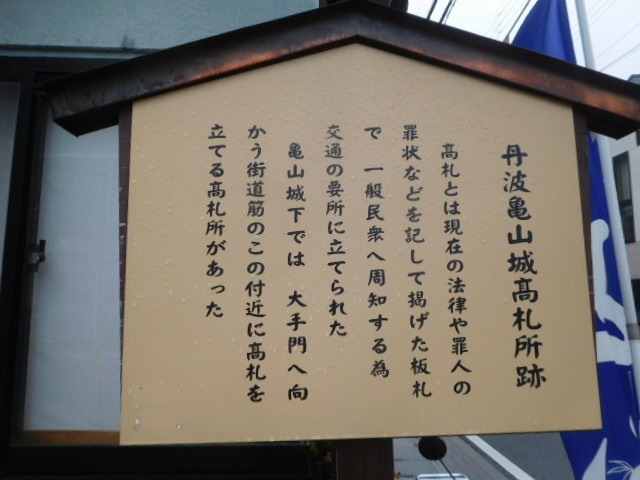 丹波亀山城髙札所跡
髙札とは現在の法律や罪人の
罪状などを記して掲げた板札
で 一般民衆へ周知する為
交通の要所に立てられた
亀山城下では 大手門へ向
かう街道筋のこの付近に髙札を
立てる髙札所があった